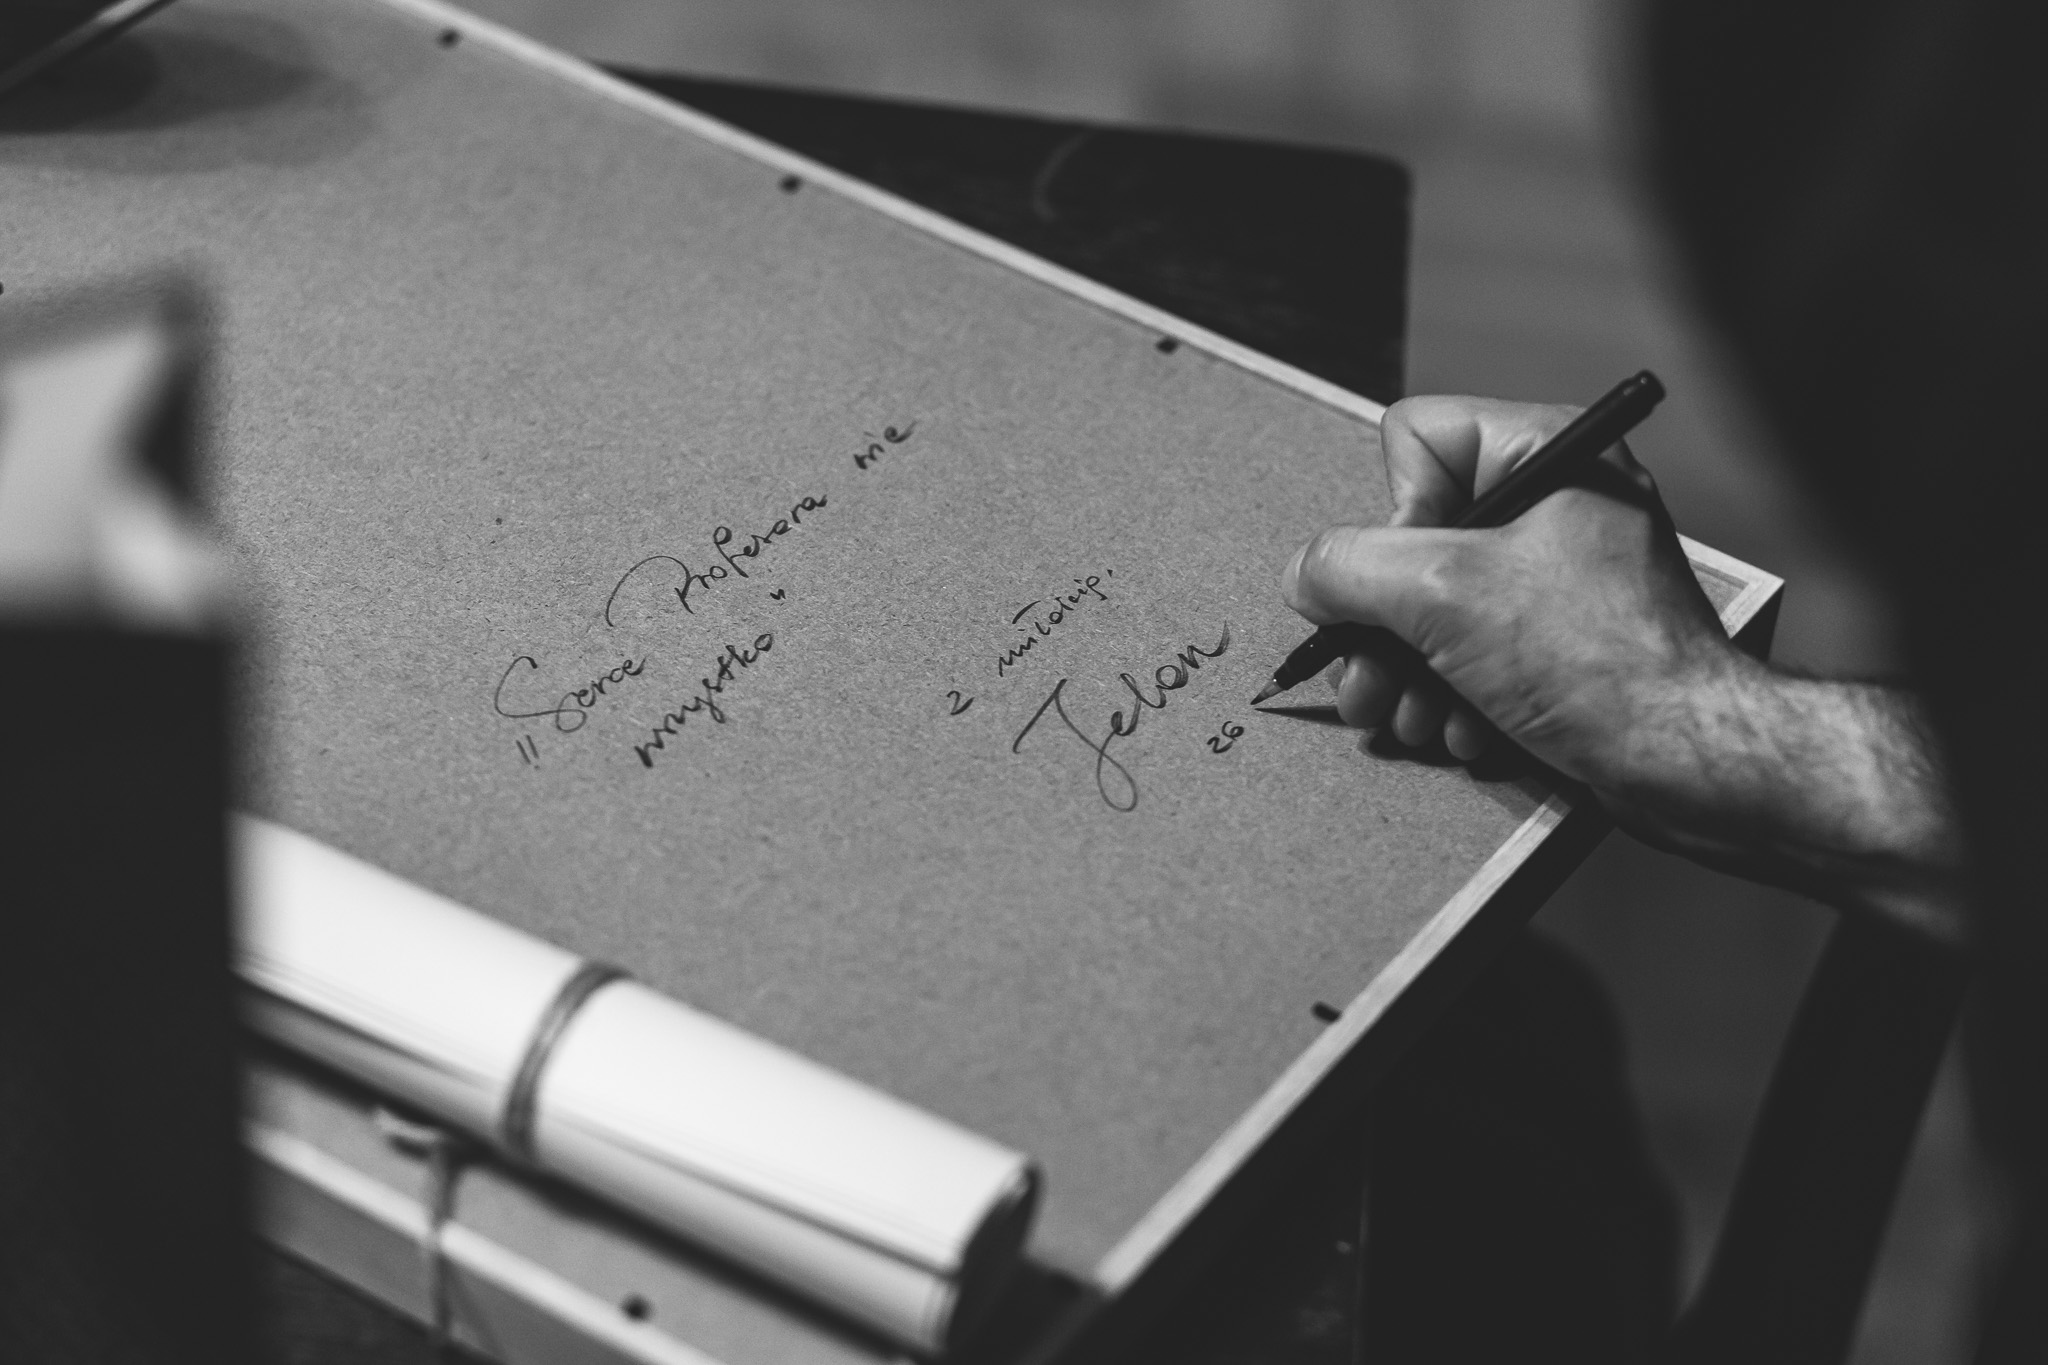 „Serce Profesora nie
wszystko"
z miłością,
Jelon
26